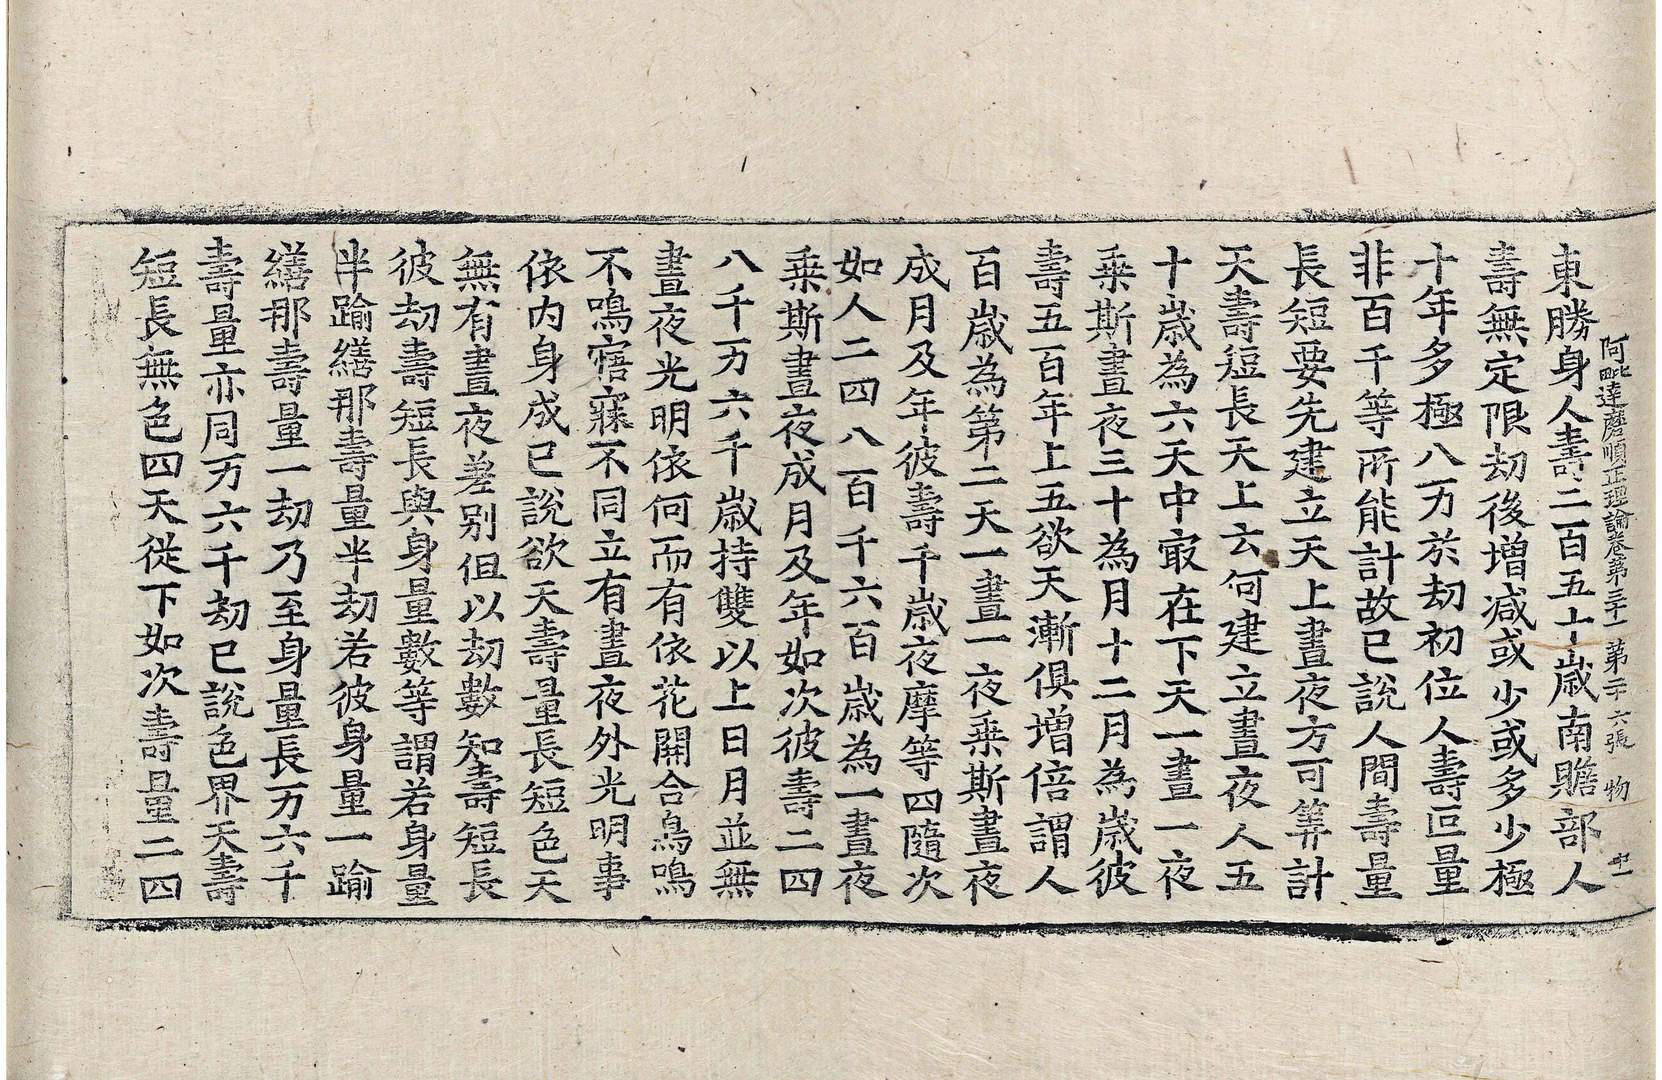 阿毗達磨順正理論卷第三十一 第二十六張 物
東勝身人壽二百五十歲南贍部人
壽無定限劫後增減或少或多少極
十年多極八万於劫初位人壽叵量
非百千等所能計故已說人間壽量
長短要先建立天上晝夜方可筭計
天壽短長天上云何建立晝夜人五
十歲為六天中冣在下天一晝一夜
乗斯晝夜三十為月十二月為歲彼
壽五百年上五欲天漸俱增倍謂人
百歲為第二天一晝一夜乗斯晝夜
成月及年彼壽千歲夜摩等四隨次
如人二四八百千六百歲為一晝夜
乗斯晝夜成月及年如次彼壽二四
八千一万六千歲持雙以上日月並無
晝夜光明依何而有依花開合鳥鳴
不鳴寤寐不同立有晝夜外光明事
依內身成已說欲天壽量長短色天
無有晝夜差別但以劫數知壽短長
彼劫壽短長與身量數等謂若身量
半踰繕那壽量半劫若彼身量一踰
繕那壽量一劫乃至身量長万六千
壽量亦同万六千劫已說色界天壽
短長無色四天從下如次壽量二四